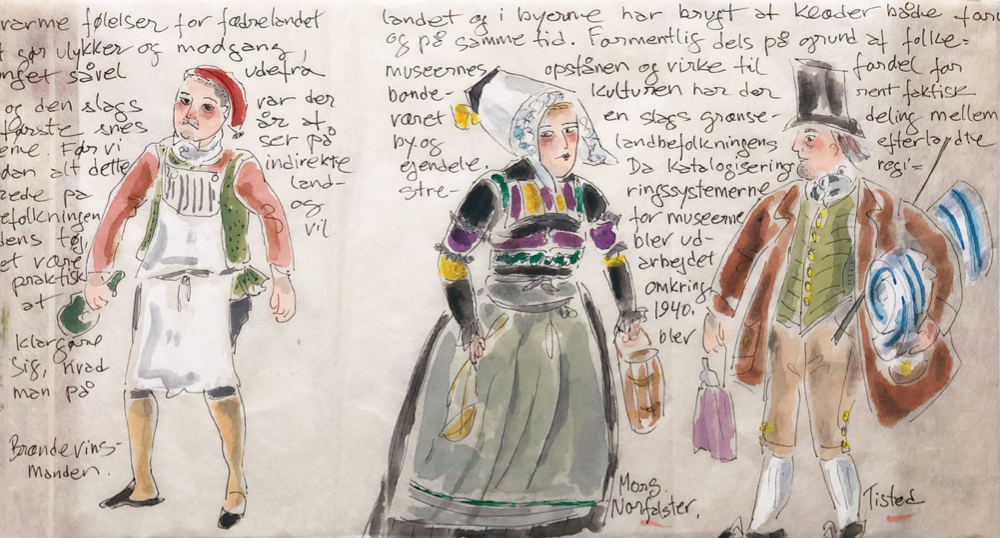 varme følelser for fædrelandet
t gør ulykker og modgang,
nget såvel udefra
og den slags var der
første snes år af
ene. Før vi ser på
dan alt dette indirekte
rede på land-
efolkningen og
dens tøj, vil
et være
praktisk
at
klargøre
sig, hvad
man på
Brændevins-
manden.
landet og i byerne har brugt af klæder både før
og på samme tid. Formentlig dels på grund af folke=
museernes opståen og virke til fordel for
bonde- kulturen har der rent faktisk
været en slags grænse- deling mellem
by og landbefolkningens efterladte
ejendele. Da katalogisering regi=
stre- ringssystemerne
for museerne
blev ud-
arbejdet
omkring
1940.
blev
Mors.
Norfalster.
Tisted